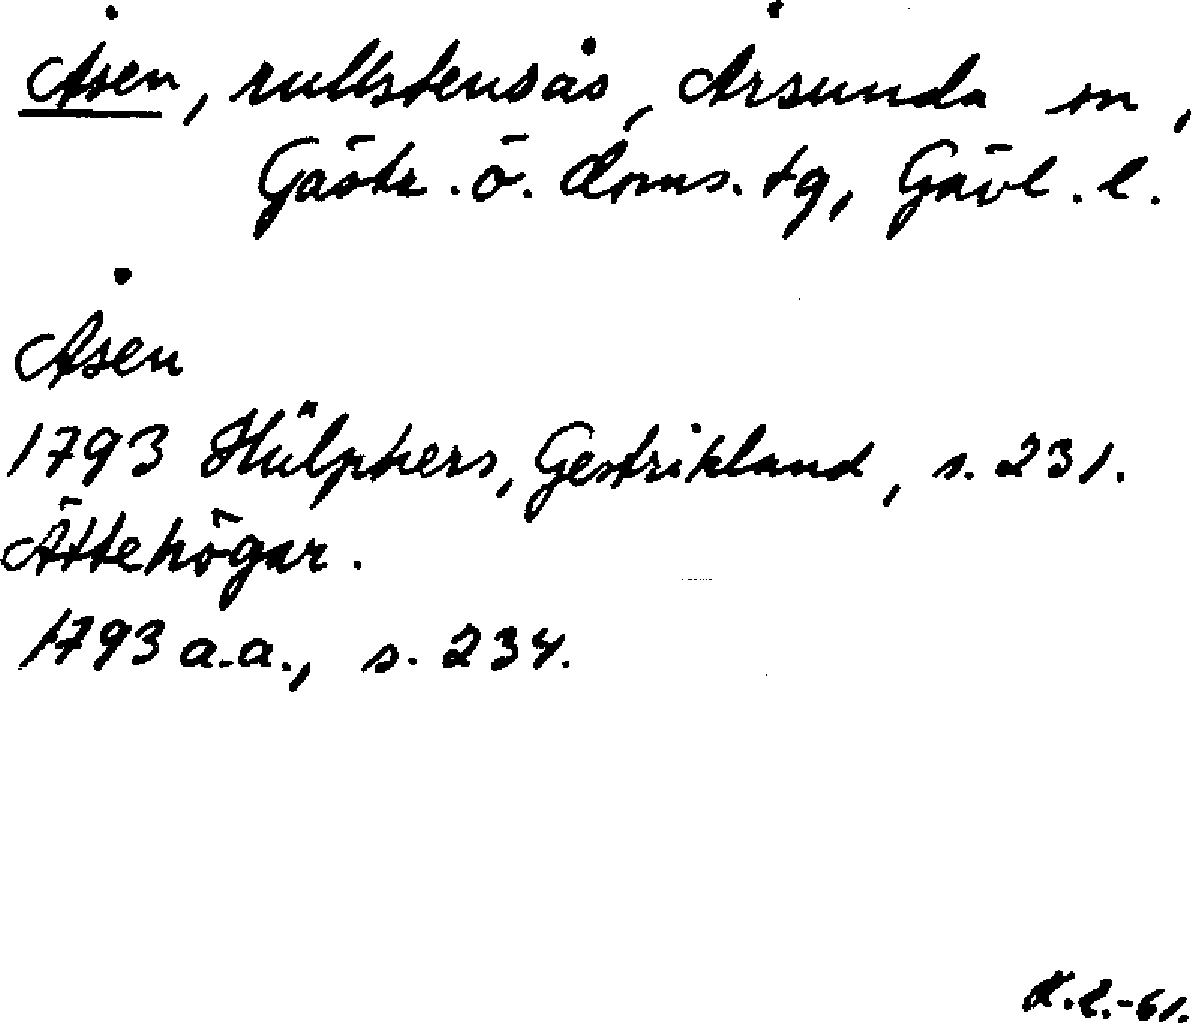 Åsen, rullstensås, Årsunda sn,
Gästr. ö. doms. tg, Gävl. l.
Åsen
1793 Hülphers, Gestrikland, s. 231.
Ättehögar.
1793 a.a., s. 234.
K.L.-61.